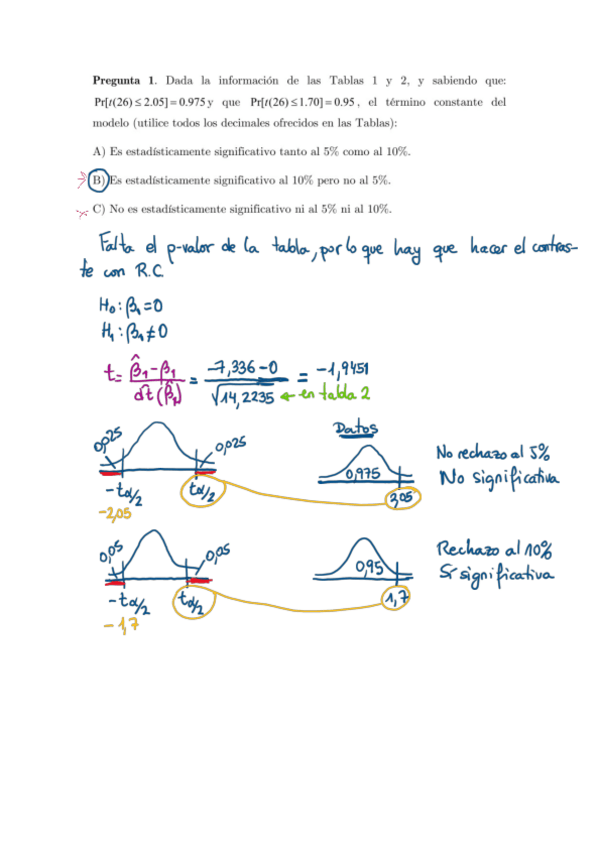 Pregunta 1. Dada la información de las Tablas 1 y 2, y sabiendo que:
Pr[t(26) ≤ 2.05] = 0.975 y que Pr[t(26) ≤ 1.70] = 0.95 , el término constante del
modelo (utilice todos los decimales ofrecidos en las Tablas):
A) Es estadísticamente significativo tanto al 5% como al 10%.
B) Es estadísticamente significativo al 10% pero no al 5%.
C) No es estadísticamente significativo ni al 5% ni al 10%.
Falta el p-valor de la tabla, por lo que hay que hacer el contras-
te con R.C.
H₀: β₁=0
H₁: β₁≠0
t= β̂₁-β₁ / dt(β̂₁) = -7,336-0 / √14,2235 = -1,9451
← en tabla 2
0,025 0,025 Datos
0,975
No rechazo al 5%
No significativa
-tα/2 tα/2 2,05
-2,05
0,05 0,05 0,95
Rechazo al 10%
Sí significativa
-tα/2 tα/2 1,7
-1,7